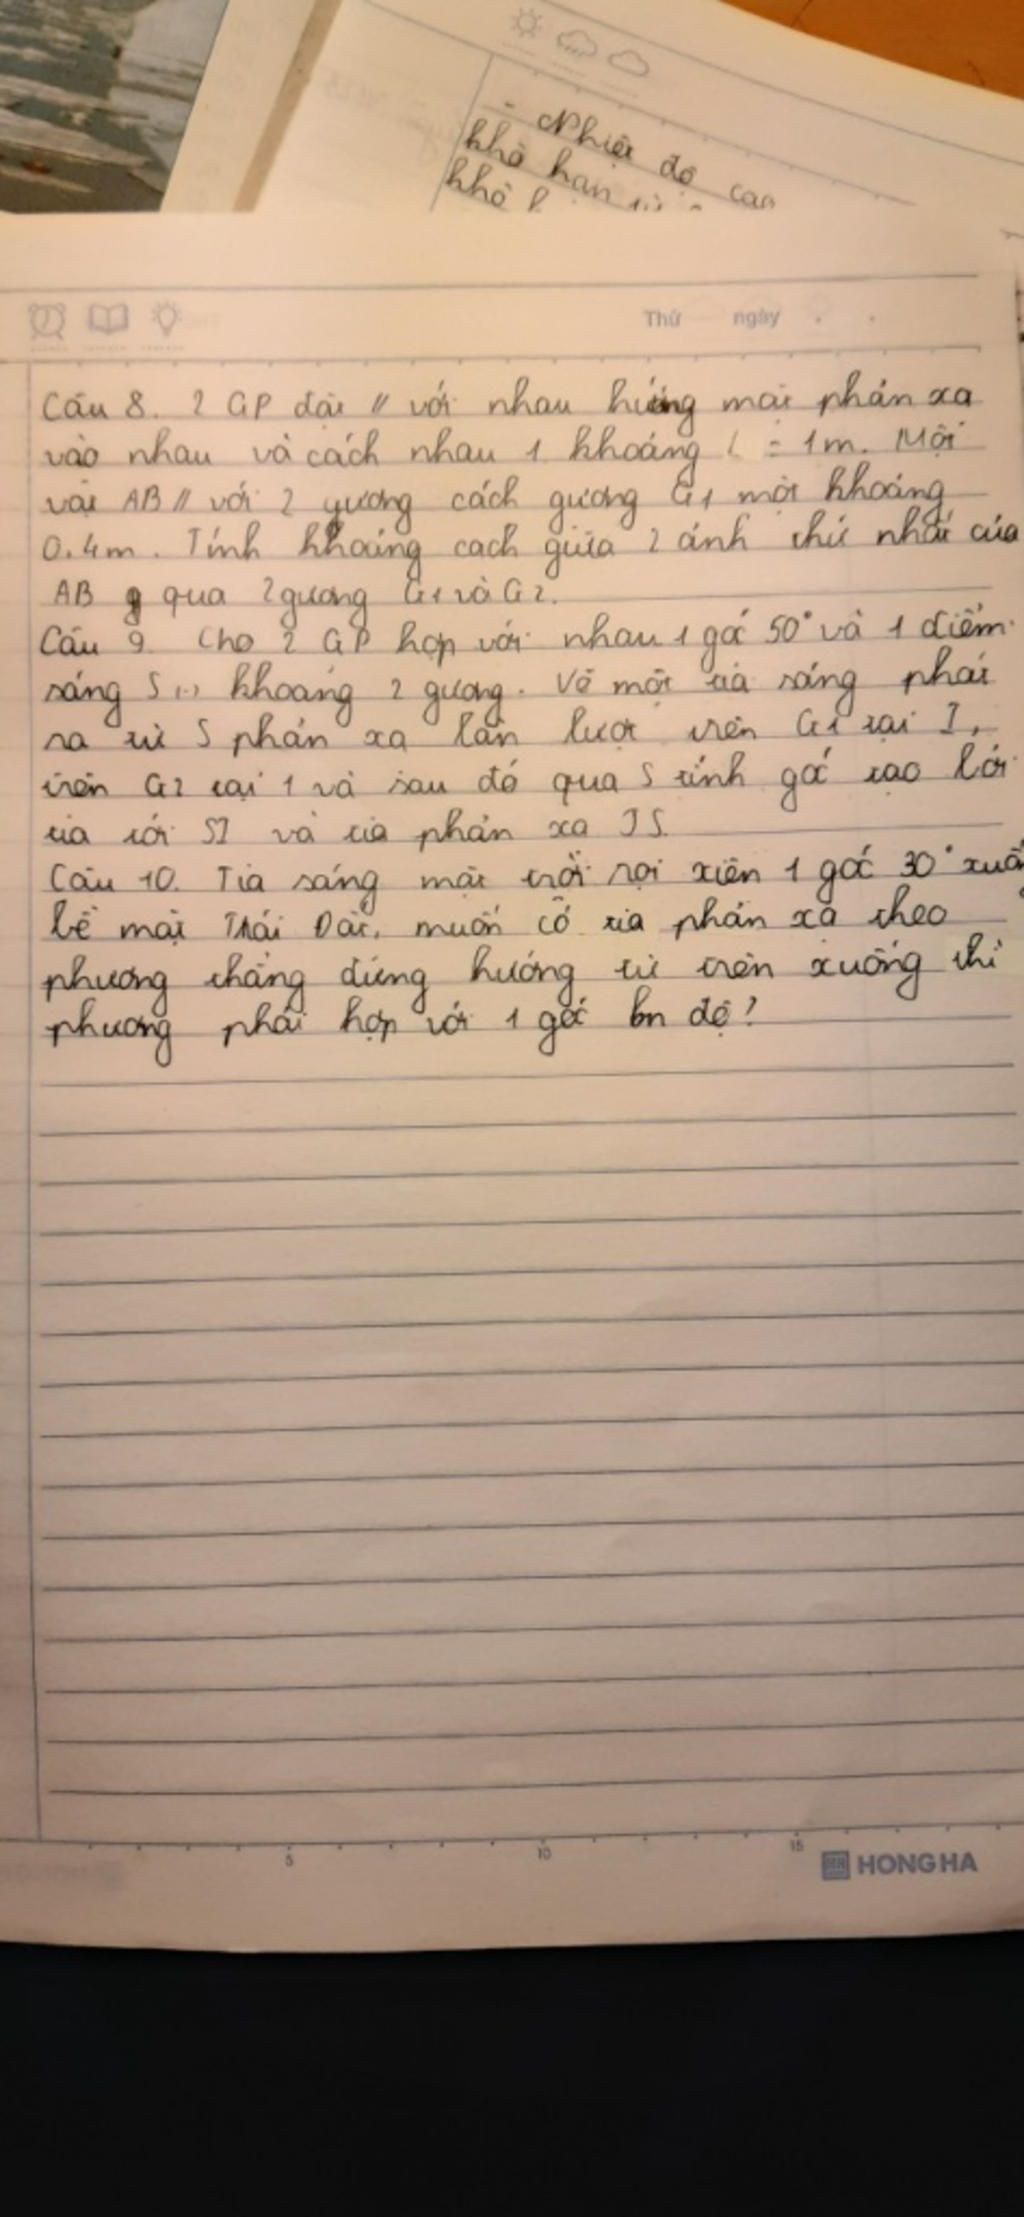 - Nhiệt độ cao
khô hạn
khô
Thứ ngày
Câu 8. 2 GP đặt // với nhau hướng mặt phản xạ
vào nhau và cách nhau 1 khoảng L = 1m. Một
vật AB // với 2 gương cách gương G1 một khoảng
0.4m. Tính khoảng cách giữa 2 ảnh thứ nhất của
AB qua 2 gương G1 và G2.
Câu 9. Cho 2 GP hợp với nhau 1 góc 50° và 1 điểm
sáng S (..) khoảng 2 gương. Vẽ một tia sáng phát
ra từ S phản xạ lần lượt trên G1 tại I,
trên G2 tại 1 và sau đó qua S tính góc tạo bởi
tia tới SI và tia phản xạ JS.
Câu 10. Tia sáng mặt trời rọi xiên 1 góc 30° xuống
bề mặt Trái Đất, muốn có tia phản xạ theo
phương thẳng đứng hướng từ trên xuống thì
phương phải hợp với 1 góc bn độ?
5 10 15
HONG HA